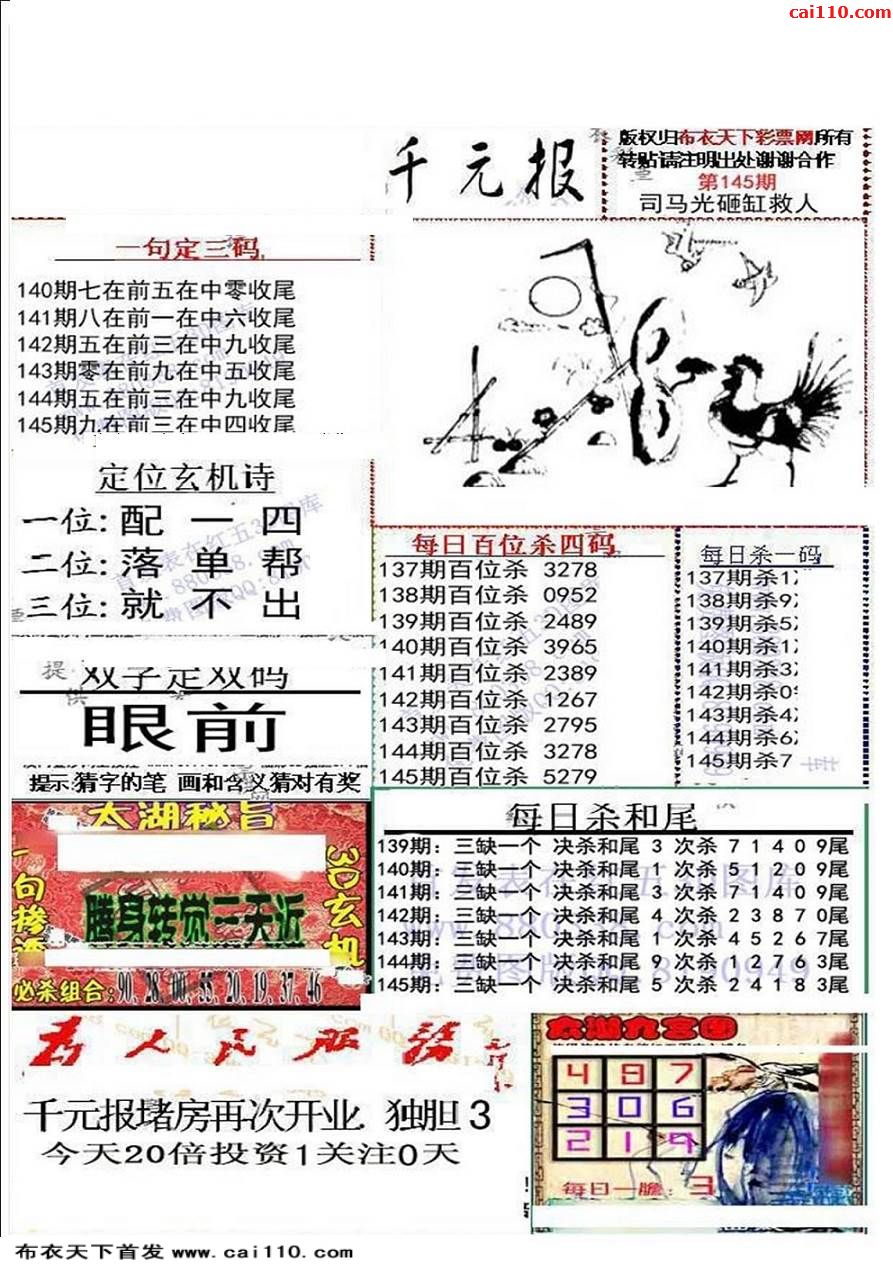 cai110.com
千元报
版权归布衣天下彩票网所有
转贴请注明出处谢谢合作
第145期
司马光砸缸救人
一句定三码
140期七在前五在中零收尾
141期八在前一在中六收尾
142期五在前三在中九收尾
143期零在前九在中五收尾
144期五在前三在中九收尾
145期九在前三在中四收尾
定位玄机诗
一位: 配 一 四
二位: 落 单 帮
三位: 就 不 出
双字定双码
眼前
提示:猜字的笔 画和含义猜对有奖
每日百位杀四码
137期百位杀 3278
138期百位杀 0952
139期百位杀 2489
140期百位杀 3965
141期百位杀 2389
142期百位杀 1267
143期百位杀 2795
144期百位杀 3278
145期百位杀 5279
每日杀一码
137期杀1
138期杀9
139期杀5
140期杀1
141期杀3
142期杀0
143期杀4
144期杀6
145期杀7
太湖秘旨
3D玄机
腾身转觉三天近
必杀组合:90,28,00,55,20,19,37,46
每日杀和尾
139期: 三缺一个 决杀和尾 3 次杀 7 1 4 0 9尾
140期: 三缺一个 决杀和尾 6 次杀 5 1 2 0 9尾
141期: 三缺一个 决杀和尾 3 次杀 7 1 4 0 9尾
142期: 三缺一个 决杀和尾 4 次杀 2 3 8 7 0尾
143期: 三缺一个 决杀和尾 1 次杀 4 5 2 6 7尾
144期: 三缺一个 决杀和尾 9 次杀 1 2 7 6 3尾
145期: 三缺一个 决杀和尾 5 次杀 2 4 1 8 3尾
为人民服务
千元报堵房再次开业. 独胆 3
今天20倍投资1关注0天
太湖九宫图
4 8 7
3 0 6
2 1 9
每日一胆: 3
布衣天下首发 www.cai110.com